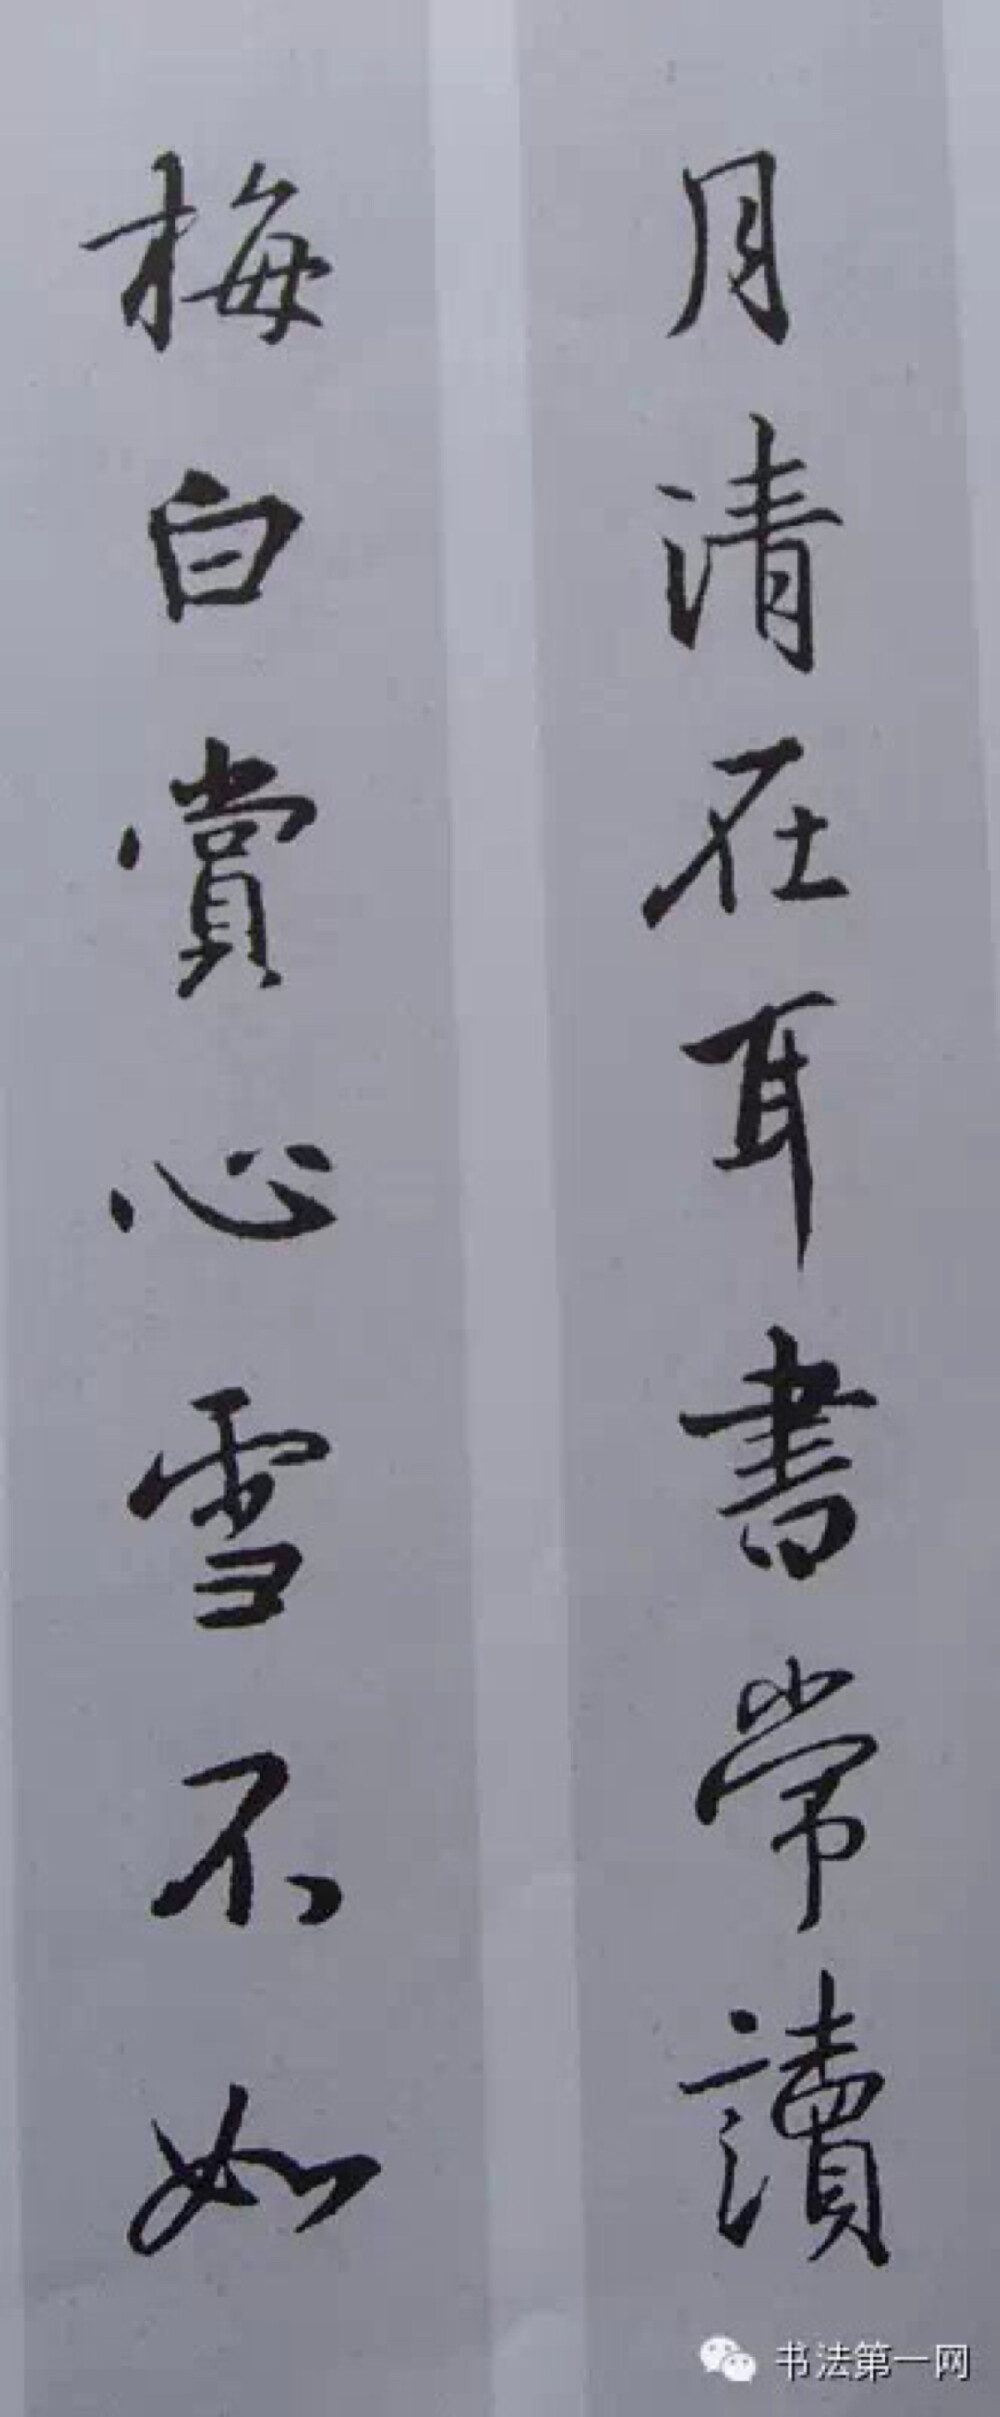 月清在耳書常讀
梅白賞心雪不如
书法第一网